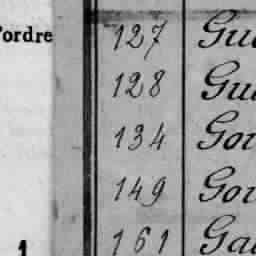 l'ordre
127 Gu
128 Gu
134 Gor
149 Gor
1 161 Ga